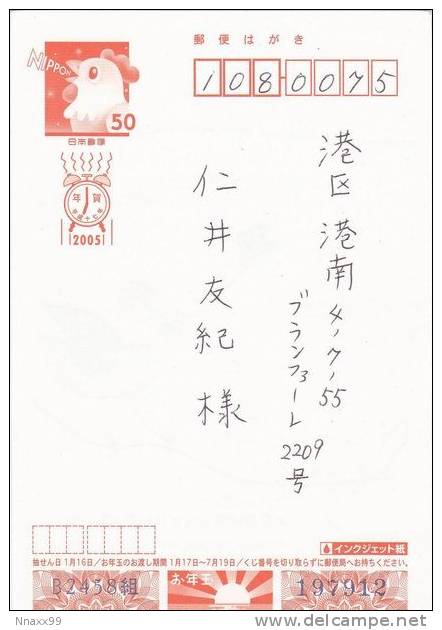 郵便はがき
NIPPON
50
日本郵便
1080075
年賀
平成十七年
2005
港区 港南 4-7-55
2209
号
仁井友紀 様
インクジェット紙
抽せん日1月16日/お年玉のお渡し期間 1月17日〜7月19日/くじ番号を切り取らずに郵便局へお持ちください。
B2458組
お年玉
197912
Nnaxx99
delcampe.net